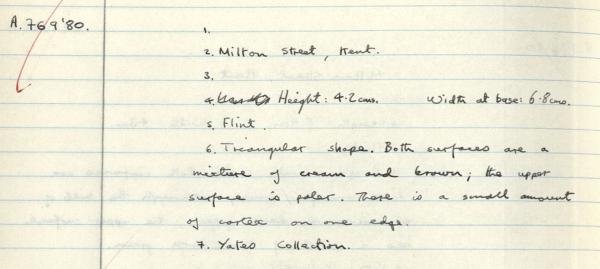 A.769'80.
1.
2. Milton Street, Kent.
3.
4. Height: 4.2cms. Width at base: 6.8cms.
5. Flint.
6. Triangular shape. Both surfaces are a
mixture of cream and brown; the upper
surface is paler. There is a small amount
of cortex on one edge.
7. Yates Collection.